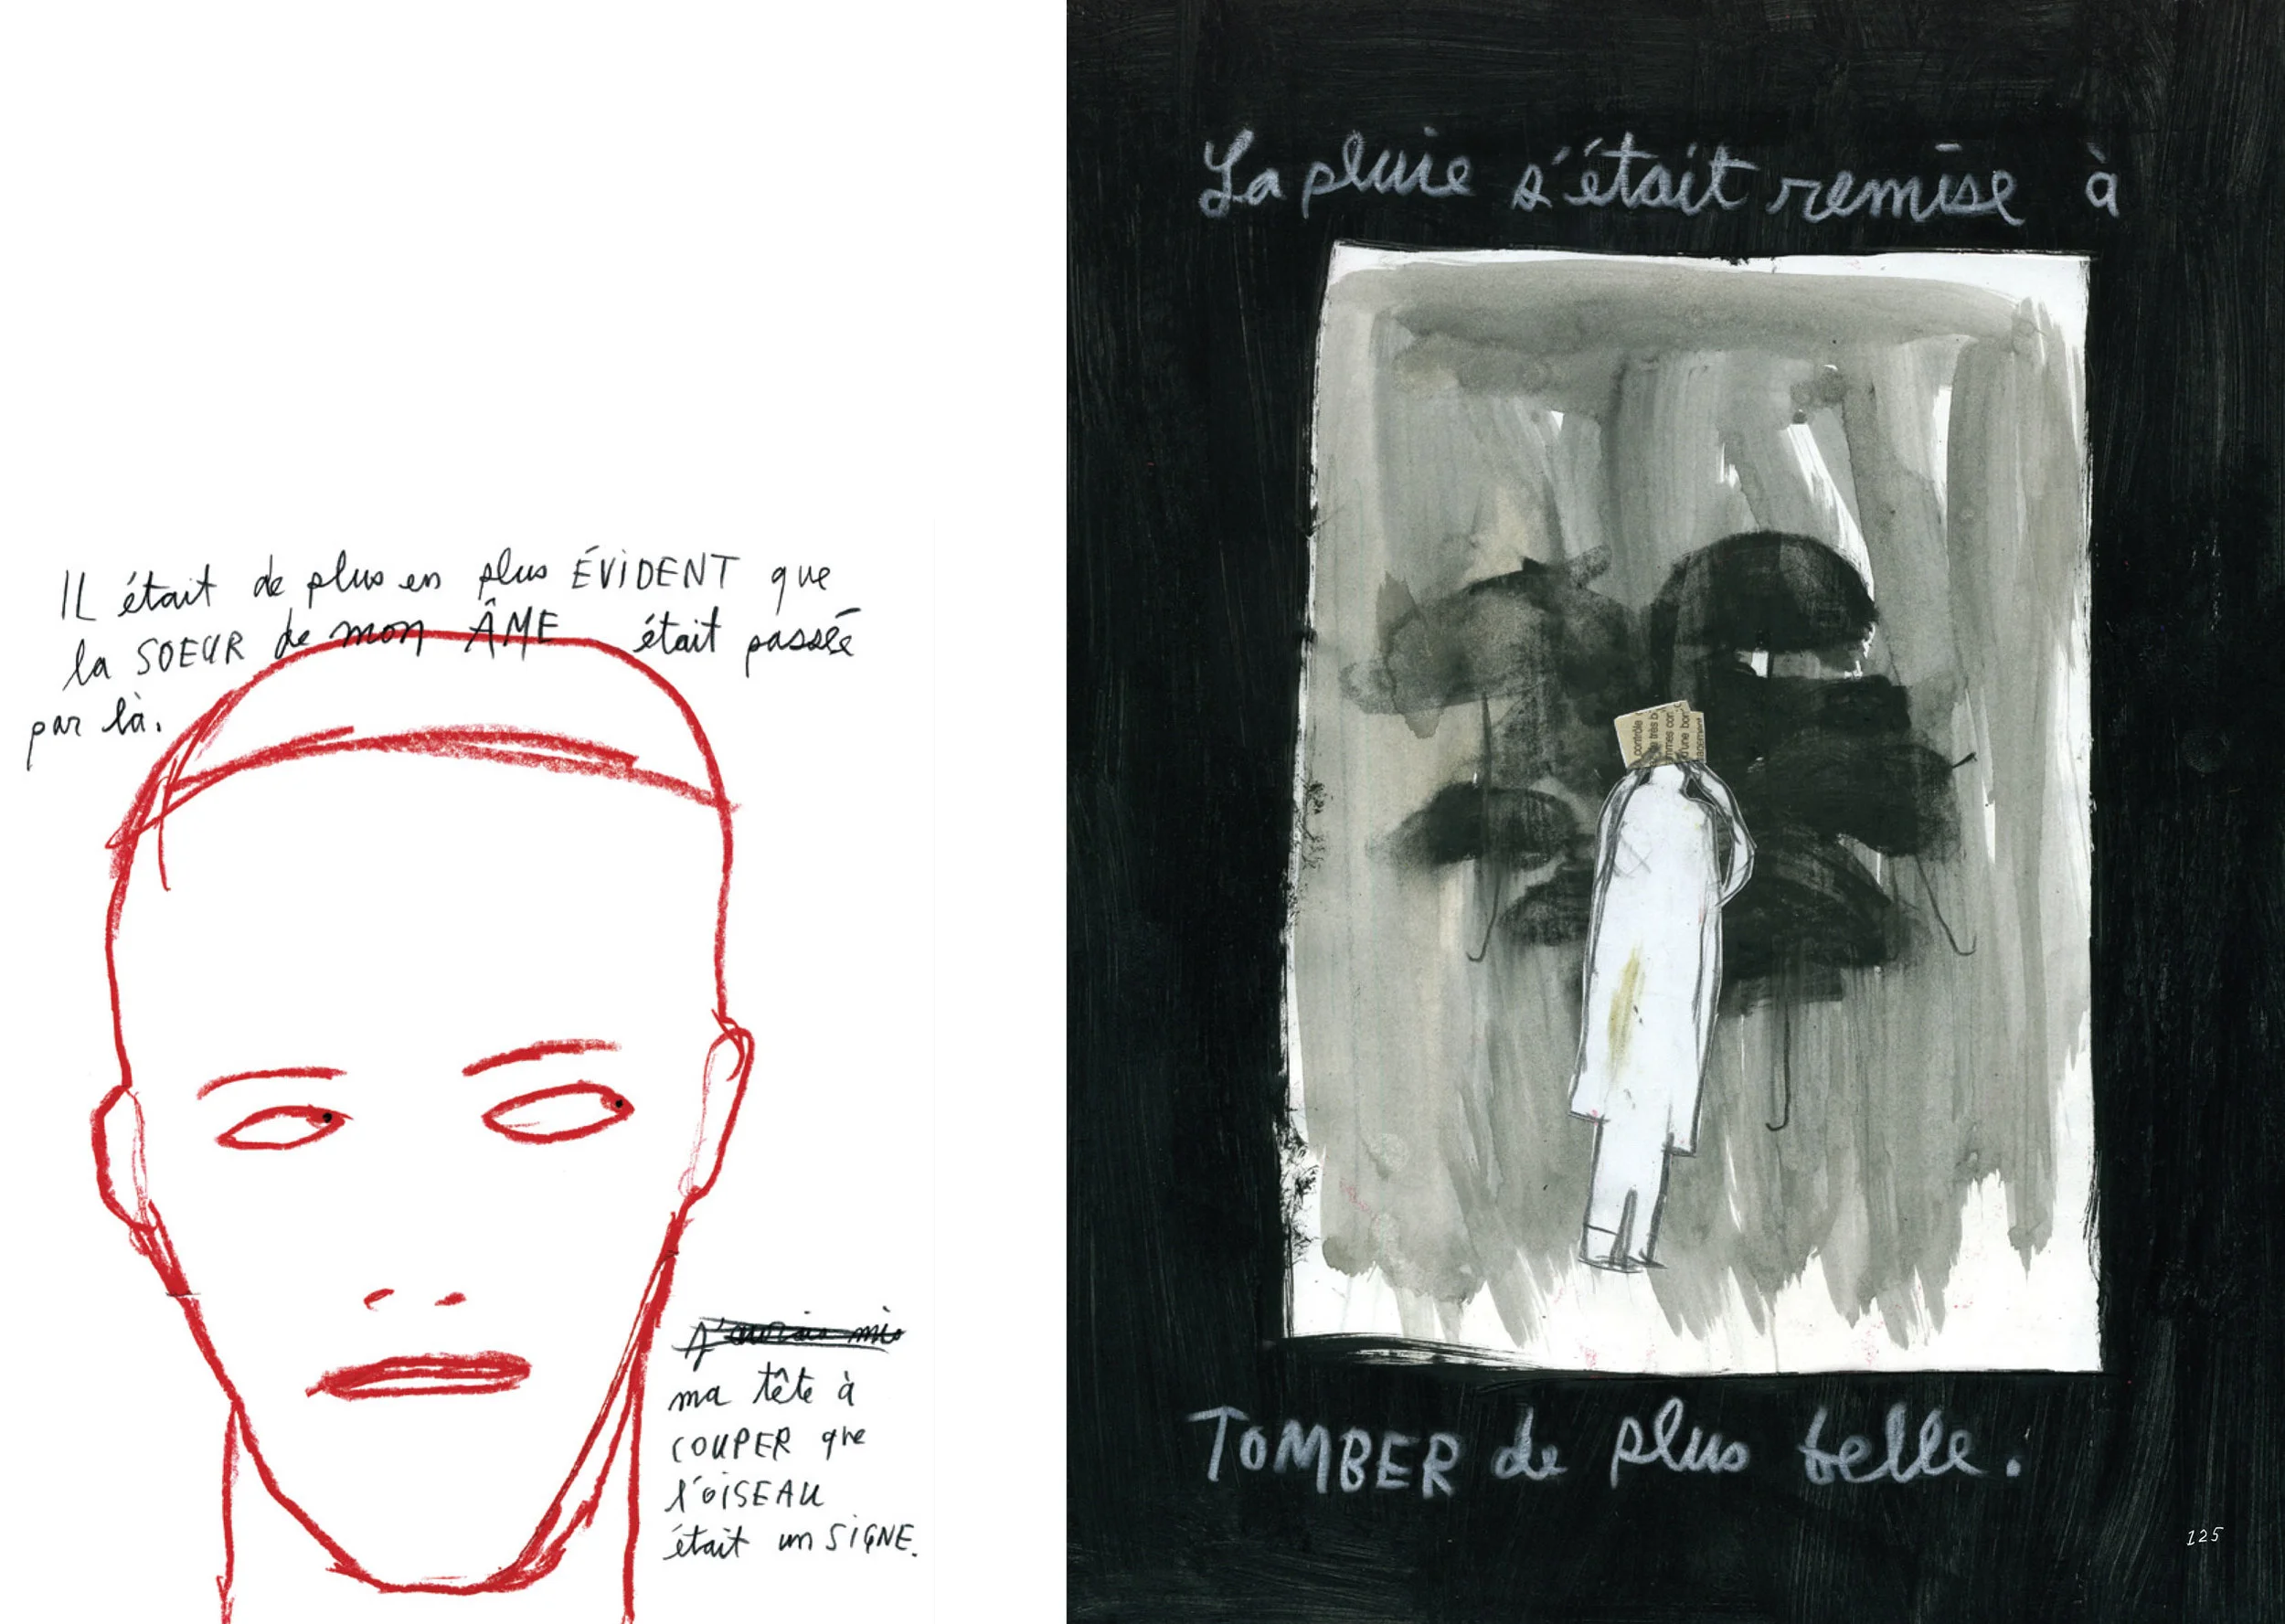 IL était de plus en plus ÉViDENT que
la SOEUR de mon ÂME était passée
par là.
j'aurais mis
ma tête à
COUPER que
l'OiSEAU
était un SiGNE.
La pluie s'était remise à
contrôle
très b
mmes con
d'une bon
agement
TOMBER de plus belle.
125